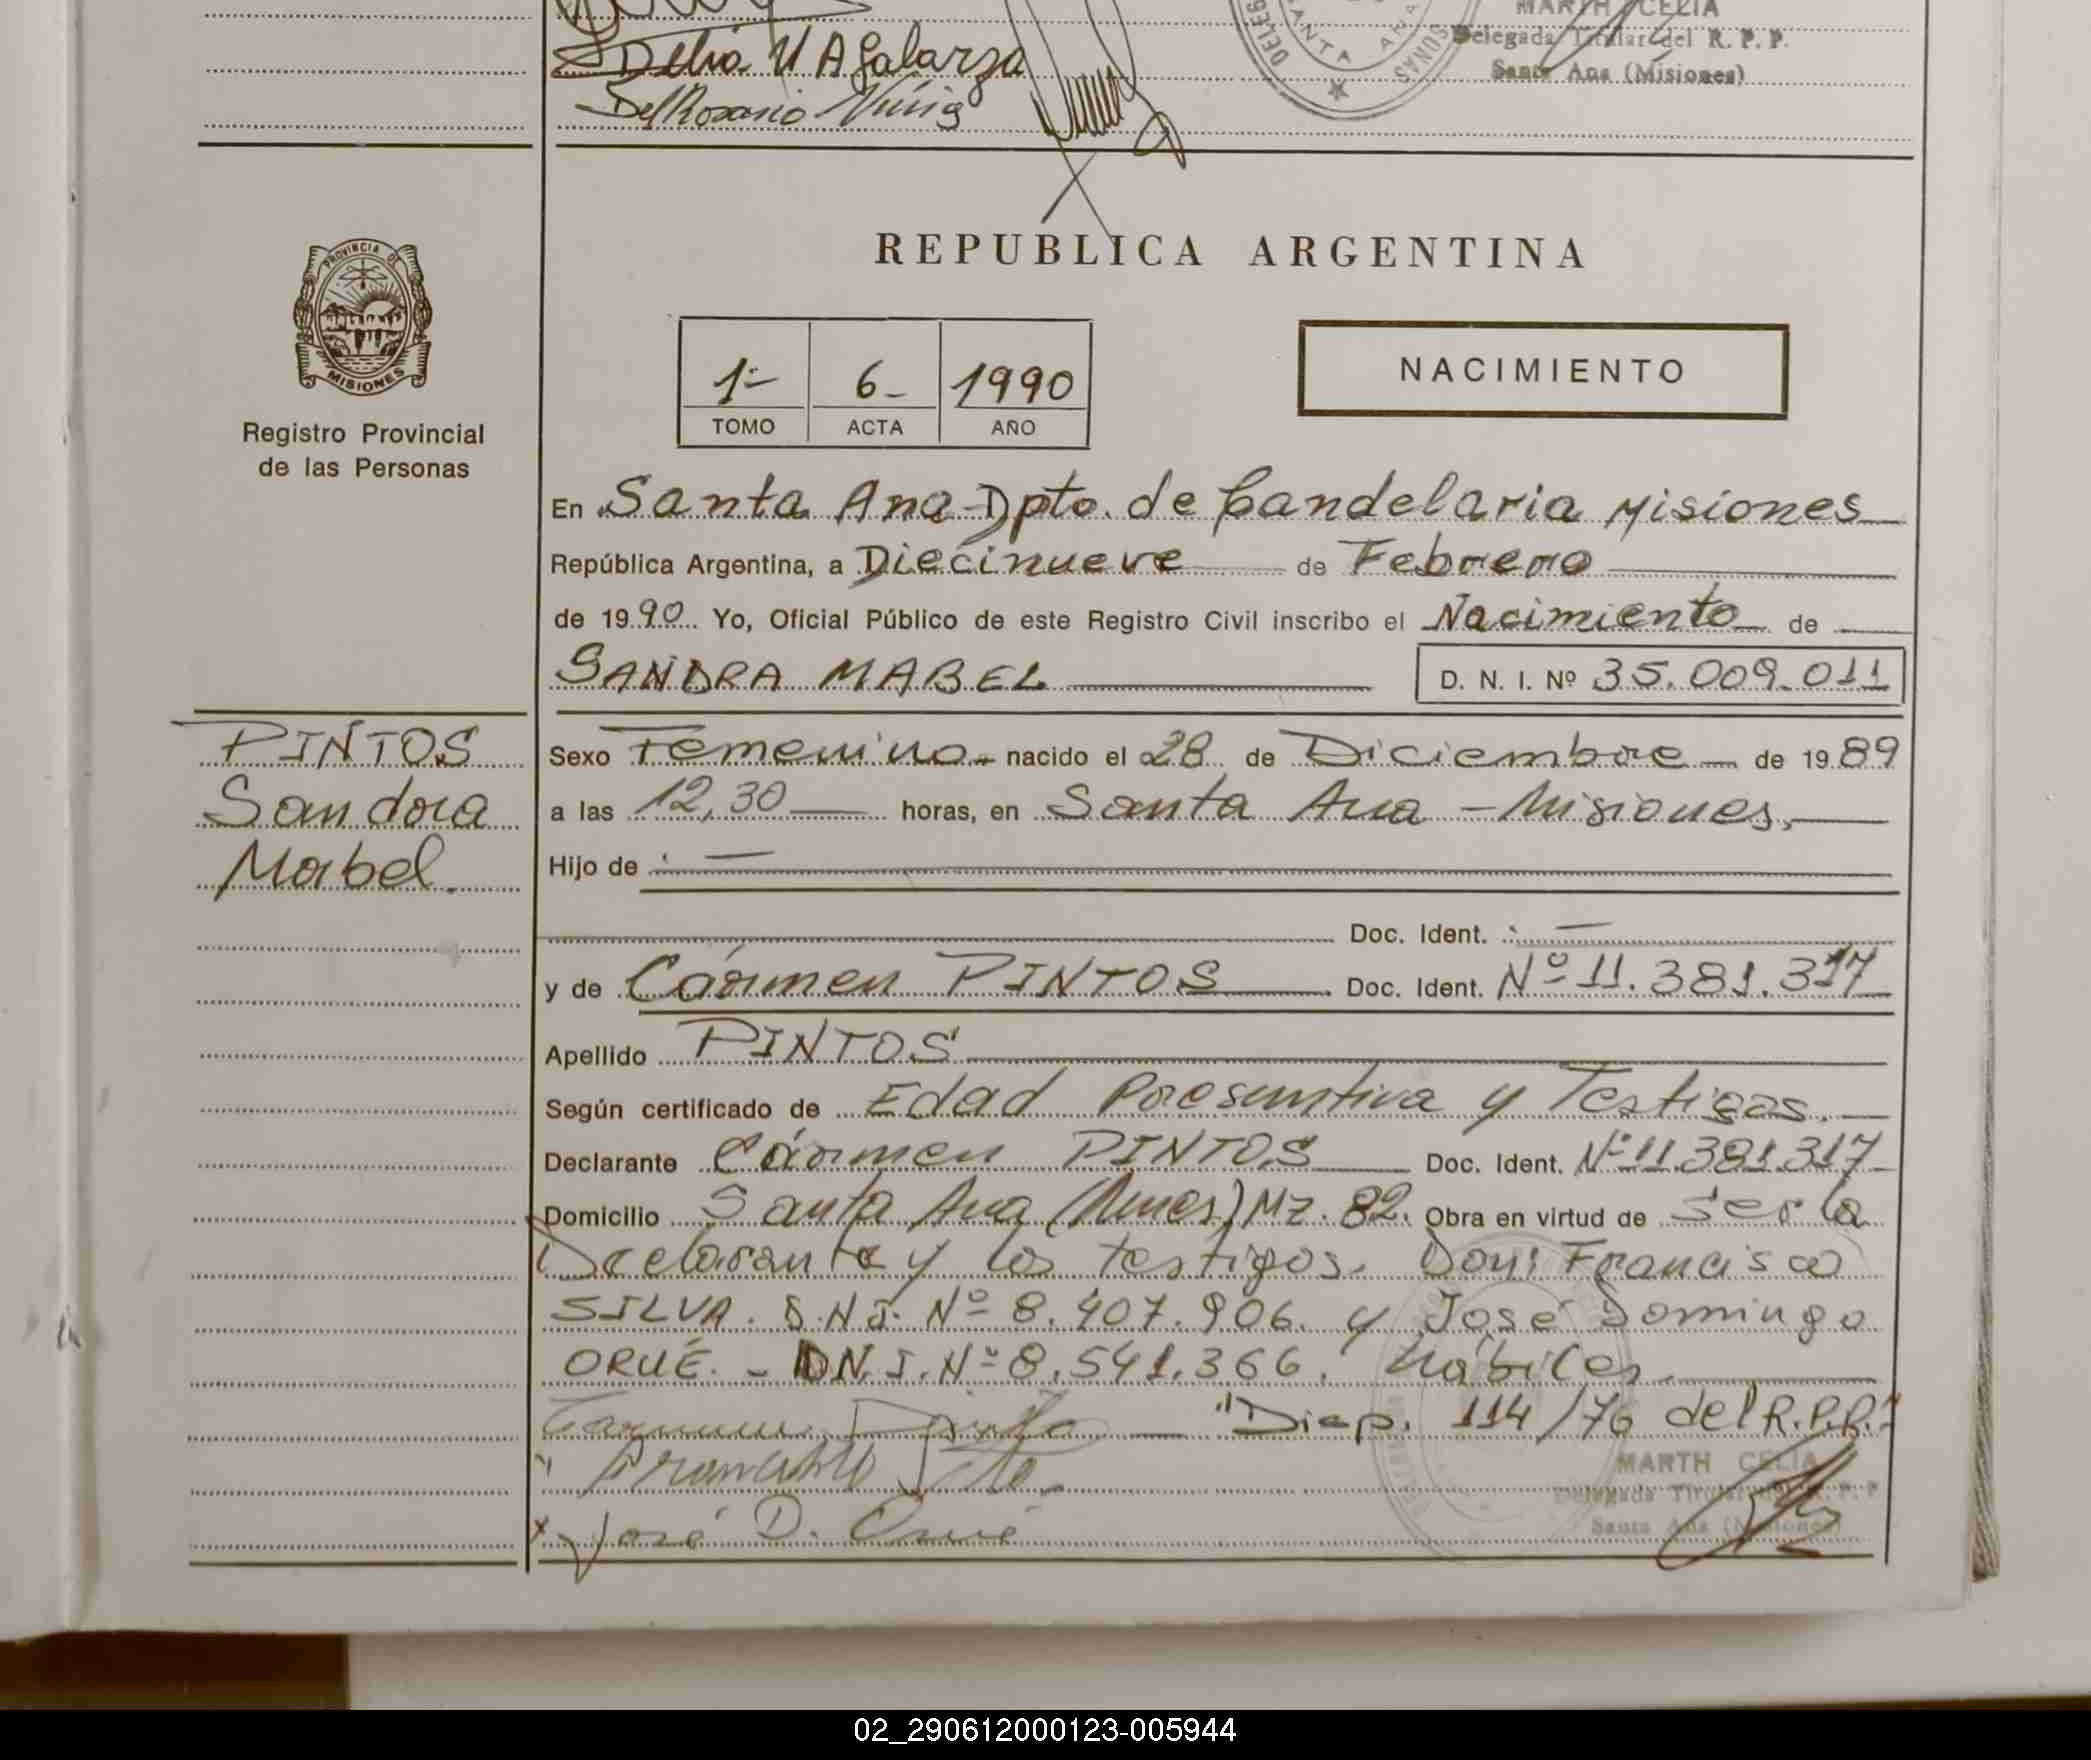 MARTH CELIA
Delegada Titular del R. P. P.
Santa Ana (Misiones)
SANTA ANA
Delia V A Galarza
Del Rosario
REPUBLICA ARGENTINA
PROVINCIA DE
MISIONES
Registro Provincial
de las Personas
1º- 6- 1990
TOMO ACTA AÑO
NACIMIENTO
En Santa Ana-Dpto. de Candelaria Misiones
República Argentina, a Diecinueve de Febrero
de 1990 Yo, Oficial Público de este Registro Civil inscribo el Nacimiento de
SANDRA MABEL D. N. I. Nº 35.009.011
PINTOS
Sandra
Mabel.
Sexo Femenino - nacido el 28 de Diciembre de 1989
a las 12,30 horas, en Santa Ana - Misiones.
Hijo de
Doc. Ident.
y de Cármen PINTOS Doc. Ident. Nº 11.381.317
Apellido PINTOS
Según certificado de Edad Presuntiva y Testigos.
Declarante Cármen PINTOS Doc. Ident. Nº 11.381.317
Domicilio Santa Ana (Mnes) Mz. 82. Obra en virtud de ser la
Declarante y los testigos. Don: Francisco
SILVA. D.N.I. Nº 8.407.906. y José Domingo
ORUÉ. - D.N.I. Nº 8.541.366. hábiles.
"Disp. 114/76 del R.P.P."
MARTH CELIA
Delegada Titular del R. P. P
Santa Ana (Misiones)
José D. Orué
02_290612000123-005944